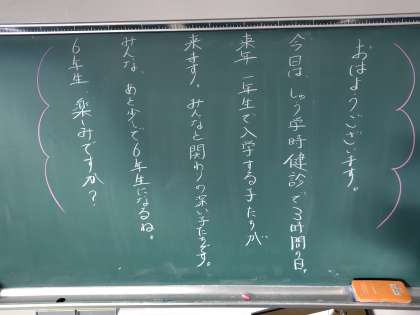 おはようございます。
今日は、しゅう学時健診で3時間の日。
来年一年生で入学する子たちが
来ます。みんなと関わりの深い子たちです。
みんな、あと少しで6年生になるね。
6年生、楽しみですか？